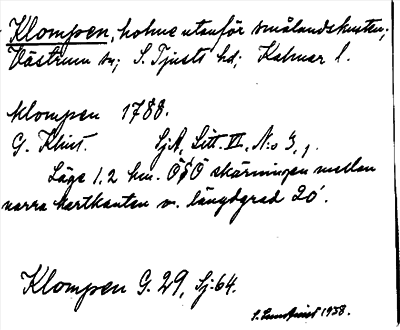 Klompen, holme utanför smålandskusten;
Västrum sn; S. Tjusts hd; Kalmar l.
Klompen 1788.
G. Klint. SjA, Litt. II, N:o 3, 1.
Läge 1,2 km. OSO skärningen mellan
norra kartkanten o. längdgrad 20'.
Klompen G. 29, Sj. 64.
S. Lundqvist 1938.